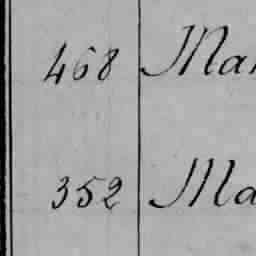 468 Mar
352 Ma